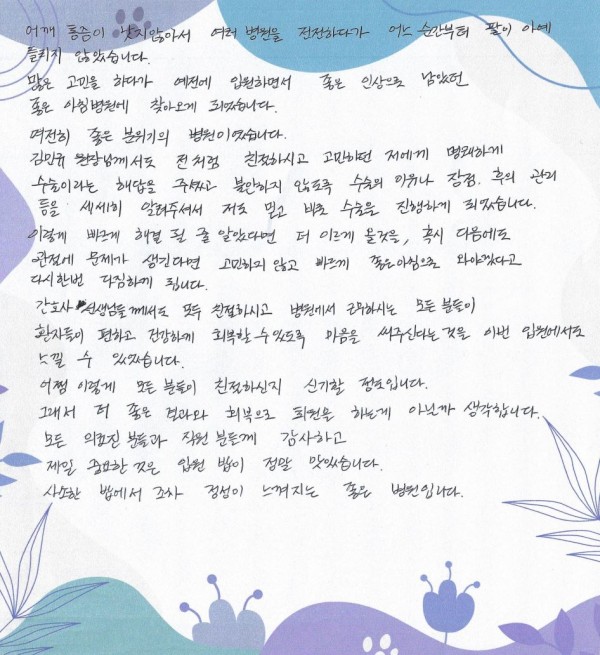 어깨 통증이 낫지않아서 여러 병원을 전전하다가 어느 순간부터 팔이 아예
들리지 않았습니다.
많은 고민을 하다가 예전에 입원하면서 좋은 인상으로 남았던
좋은 아침병원에 찾아오게 되었습니다.
여전히 좋은 분위기의 병원이었습니다.
김민규 원장님께서도 전처럼 친절하시고 고민하던 저에게 명쾌하게
수술이라는 해답을 주셨고 불안하지 않도록 수술의 이유나 장점. 후의 관리
등을 세세히 알려주셔서 저도 믿고 바로 수술을 진행하게 되었습니다.
이렇게 빠르게 해결 될 줄 알았다면 더 이르게 올것을, 혹시 다음에도
관절에 문제가 생긴다면 고민하지 않고 빠르게 좋은아침으로 와야겠다고
다시한번 다짐하게 됩니다.
간호사 선생님들께서도 모두 친절하시고 병원에서 근무하시는 모든 분들이
환자들이 편하고 건강하게 회복할 수 있도록 마음을 써주신다는 것을 이번 입원에서도
느낄 수 있었습니다.
어쩜 이렇게 모든 분들이 친절하신지 신기할 정도입니다.
그래서 더 좋은 결과와 회복으로 퇴원을 하는게 아닌가 생각합니다.
모든 의료진 분들과 직원 분들께 감사하고
제일 중요한 것은 입원 밥이 정말 맛있습니다.
사소한 밥에서 조차 정성이 느껴지는 좋은 병원입니다.